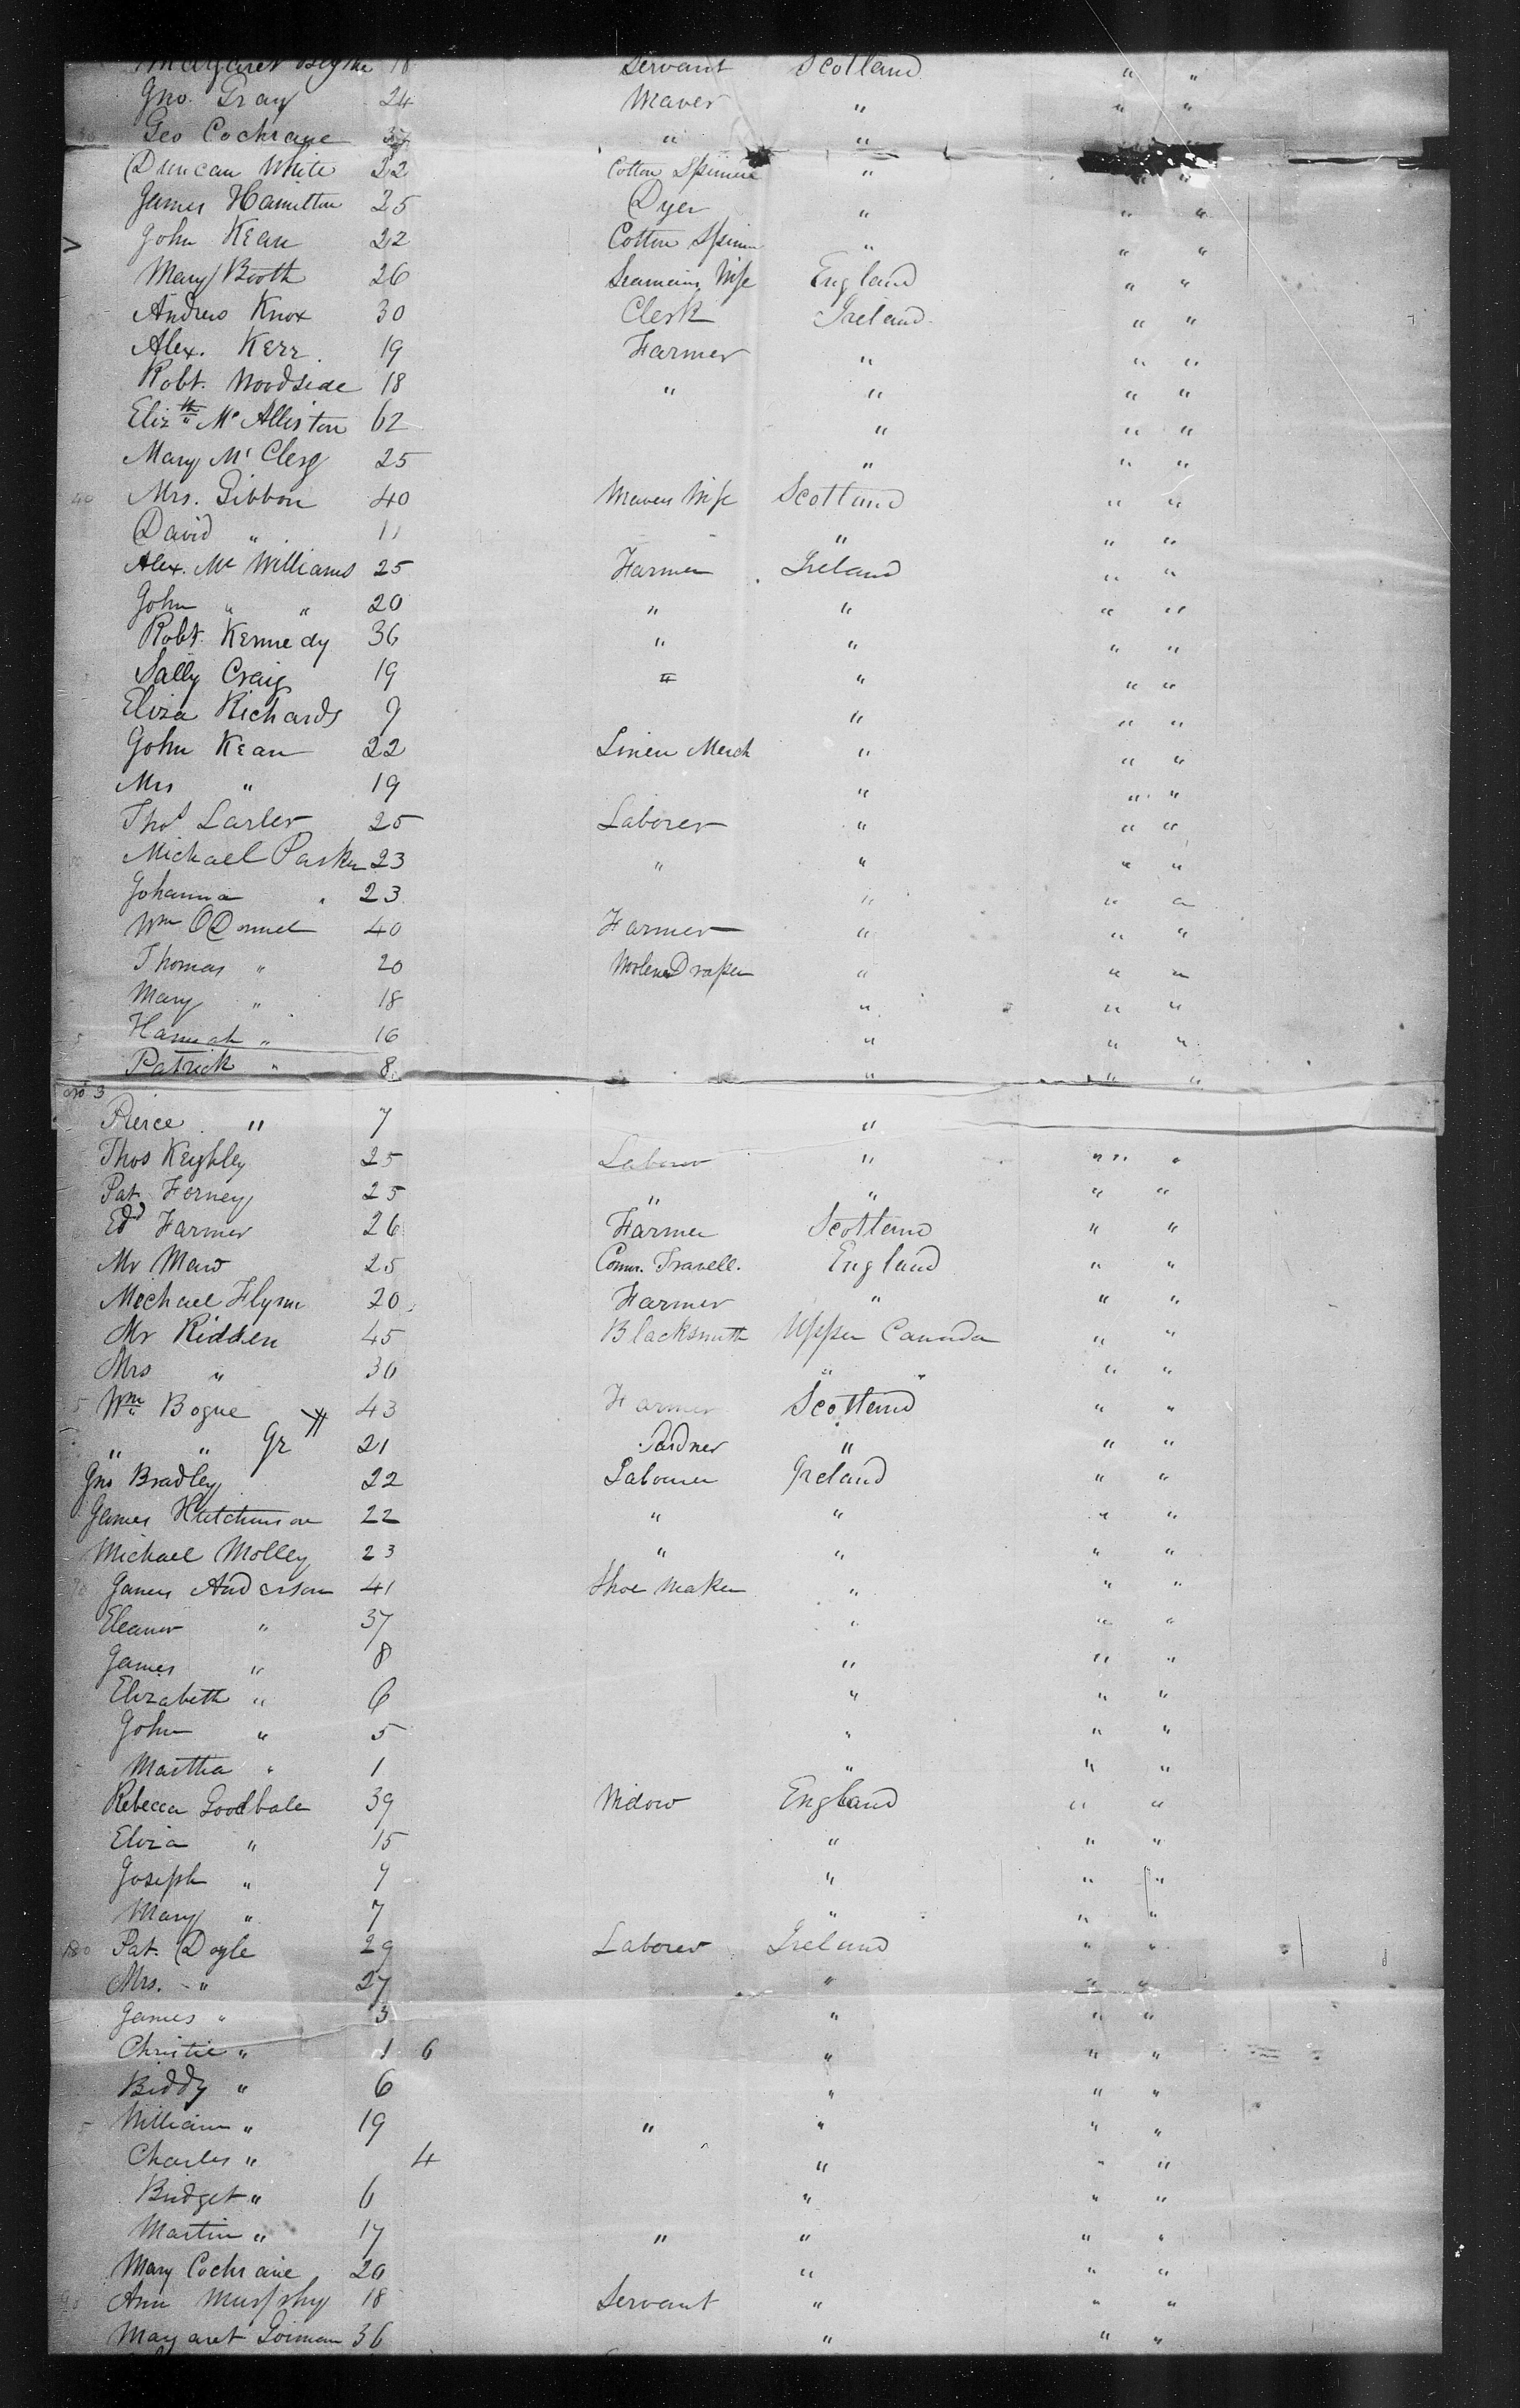 Margaret Blythe 18 Servant Scotland " "
Jno. Gray 24 Weaver " " "
Geo Cochrane " " " "
Duncan White 22 Cotton Spinner " " "
James Hamilton 25 Dyer " " "
John Kean 22 Cotton Spinn " " "
Mary Booth 26 Seamans Wife England " "
Andrew Knox 30 Clerk Ireland " "
Alex. Kerr 19 Farmer " " "
Robt. Woodside 18 " " " "
Eliz.th McAlliston 62 " " "
Mary McClerg 25 " " "
40 Mrs. Gibbon 40 Weavers Wife Scotland " "
David " 11 " " "
Alex. Mc Williams 25 Farmer Ireland " "
John " " 20 " " " "
Robt. Kennedy 36 " " " "
Sally Craig 19 " " " "
Eliza Richards 9 " " "
John Kean 22 Linen Merch " " "
Mrs " 19 " " "
Thos Larler 25 Laborer " " "
Michael Parker 23 " " " "
Johanna " 23 " " "
Wm O'Donnel 40 Farmer " " "
Thomas " 20 Woolen Draper " " "
Mary " 18 " " "
5 Hannah " 16 " " "
Patrick " 8 " " "
No 3
Pierce " 7 "
Thos Keighley 25 Laborer " " " "
Pat. Forney 25 " " " "
Edd Farmer 26 Farmer Scotland " "
Mr Maw 25 Comm. Travell. England " "
Michael Flynn 20 Farmer " " "
Mr Ridden 45 Blacksmith Upper Canada " "
Mrs " 30 " " " "
5 Wm Bogue 43 Farmer Scotland " "
" " Jr 21 Gardner " " "
Jno Bradley 22 Labourer Ireland " "
James Hutchinson 22 " " " "
Michael Molley 23 " " " "
70 James Anderson 41 Shoe Maker " " "
Eleanor " 37 " " "
James " 8 " " "
Elizabeth " 6 " " "
John " 5 " " "
Martha " 1 " " "
Rebecca Goodbale 39 Widow England " "
Eliza " 15 " " "
Joseph " 9 " " "
Mary " 7 " " "
80 Pat. Doyle 29 Laborer Ireland " "
Mrs. " 27 " " "
James " 3 " " "
Christie " 1 6 " " "
Biddy " 6 " " "
5 William " 19 " " " "
Charles " 4 " " "
Bridget " 6 " " "
Martin " 17 " " " "
Mary Cochraine 20 " " "
90 Ann Murphy 18 Servant " " "
Margaret Gorman 36 " " "